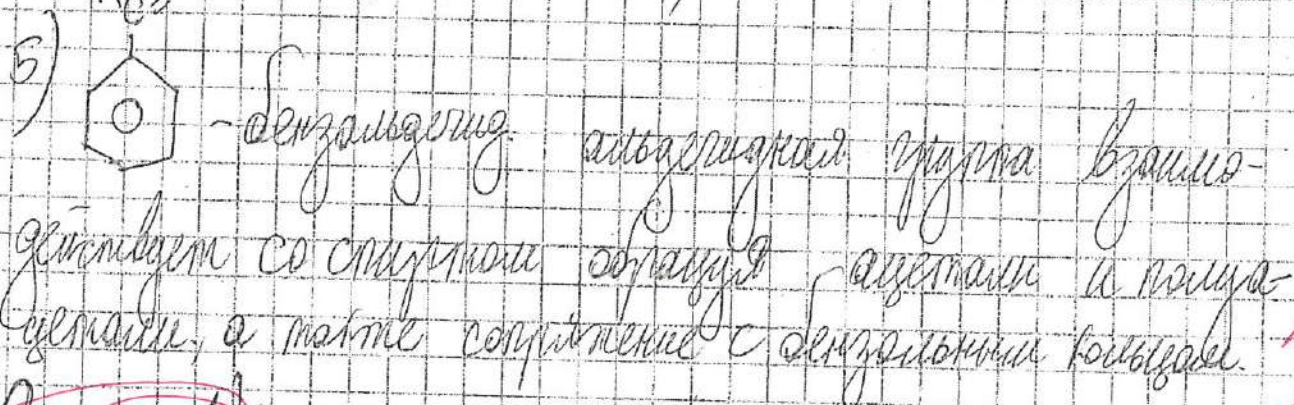 5)
- бензальдегид. альдегидная группа взаимо-
действует со спиртом образуя ацетали и полуа-
цетали, а также сопряжение с бензольным кольцом.